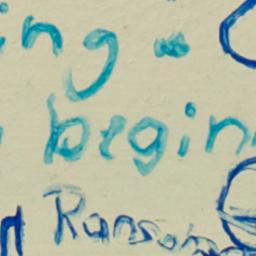 ing
begin
Ransom